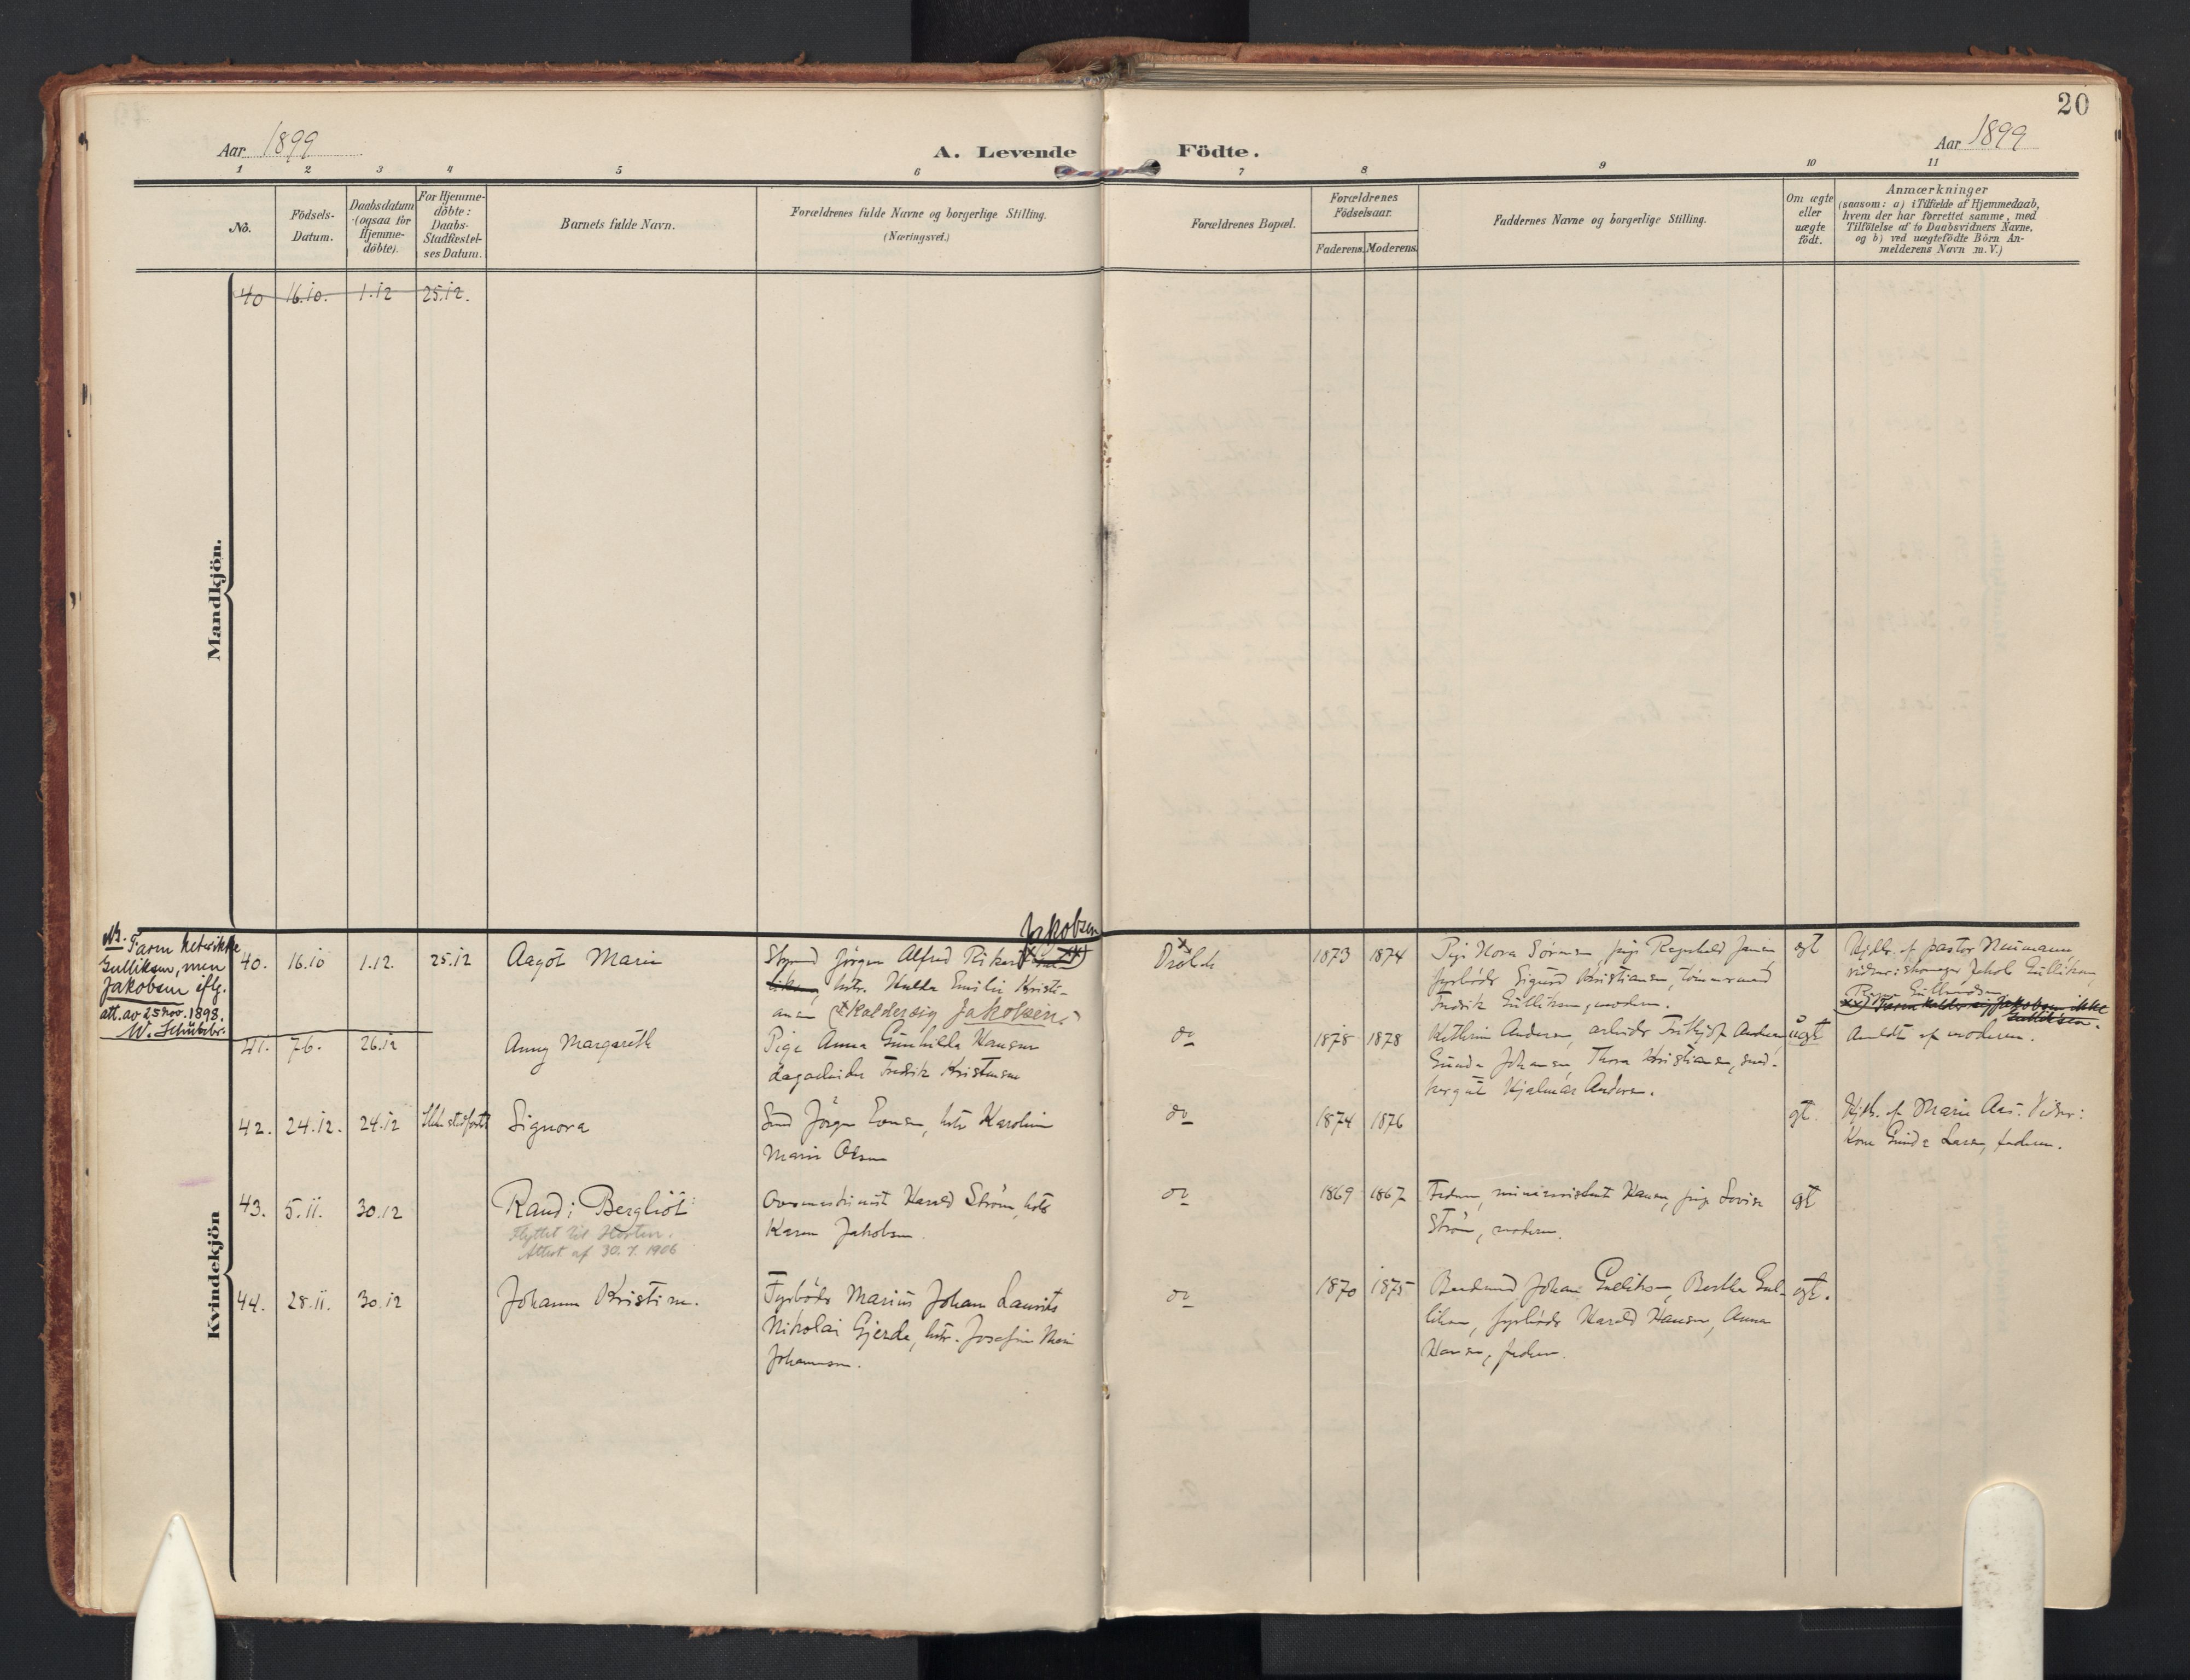 20
Aar 1899
A. Levende Födte.
Aar 1899
1 2 3 4 5 6 7 8 9 10 11
No.
Födsels-
Datum.
Daabsdatum
(ogsaa for
Hjemme-
döbte).
For Hjemme-
döbte:
Daabs-
Stadfæstel-
ses Datum.
Barnets fulde Navn.
Forældrenes fulde Navne og borgerlige Stilling.
(Næringsvei.)
Forældrenes Bopæl.
Forældrenes
Födselsaar.
Faderens. Moderens.
Faddernes Navne og borgerlige Stilling.
Om ægte
eller
uægte
födt.
Anmærkninger
(saasom: a) i Tilfælde af Hjemmedaab,
hvem der har forrettet samme, med
Tilföielse af to Daabsvidners Navne,
og b) ved uægtefödte Börn An-
melderens Navn m.V.)
Mandkjön.
40 16.10. 1.12 25.12.
Kvindekjön
NB. Faren heter ikke
Gulliksen, men
Jakobsen iflg.
att. av 25 nov. 1898.
W. Schübeler.
40. 16.10 1.12. 25.12
Aagot Marie
Jakobsen
Styrmd Jörgen Alfred Rikard
hstr. Hulda Emilie Kristi-
ansen (kalder sig Jakobsen.)
Dröbak
1873 1874
Pige Nora Sörensen, pige Ragnhild Jansen,
fyrböder Sigurd Kristiansen, tömmermand
Fredrik Gulliksen, moderen.
egt
Hjdbt. af pastor Neumann,
vidner: skomager Jakob Gulliksen,
Gulliksen
xx) Faren kalder sig Jakobsen ikke
Gulliksen.
41. 7.6. 26.12
Anny Margareth
Pige Anna Gunhilda Hansen
dagarbeider Fredrik Kristensen
do
1878 1878
Kathrine Andersen, arbeider Frithjof Andersen,
Gunda Johansen, Thora Kristiansen, sned-
kergut Hjalmar Andersen.
uegt
Anmeldt af moderen.
42. 24.12. 24.12 Ikke stadfæstet
Signora
Jörgen Evensen, hstr Karoline
Marie Olsen
do
1874 1876
gt.
Hjdbt. af Marie Aas. Vidner:
Kone Gunda Larsen, faderen.
43. 5.11. 30.12
Randi Bergliot
Flyttet til Horten.
Attest af 30.7.1906
Harald Ström, hstr
Karen Jakobsen.
do
1869 1867
Faderen, Hansen, pige Lovise
Ström, moderen.
gt
44. 28.11. 30.12
Johanne Kristine.
Fyrböder Marius Johan Laurits
Nikolai Gjerde, hstr. Josefine Marie
Johannesen.
do
1870 1875
Johan Gulliksen, Bertha Gul-
liksen, fyrböder Harald Hansen, Anna
Hansen, faderen.
gt.